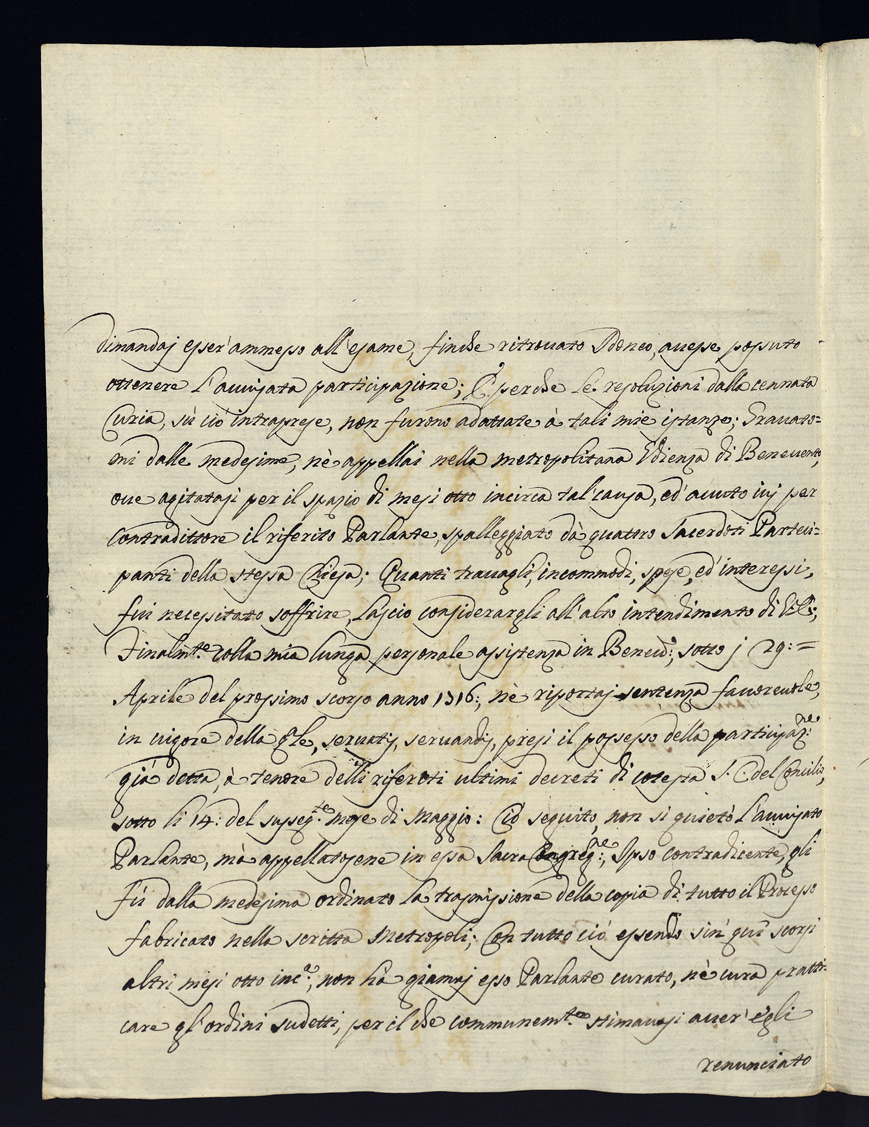 dimandaj esser'ammesso all'esame, finche ritrouato Idoneo, auesse possuto
ottenere l'auuisata participazione; E perche le resoluzioni dalla cennata
Curia, sù ciò intraprese, non furono adattate à tali mie istanze; Grauato=
mi dalle medesime, nè appellai nella Metropolitana Udienza di Beneuento,
oue agitatasi per il spazio di mesi otto incirca tal'causa, ed'auuto iui per
Contradittore il riferito Parlante, spalleggiato dà quattro Sacerdoti Parteci=
panti della stessa Chiesa; Quanti trauagli, incommodi, spese, ed'interessi,
fui necessitato soffrire, lascio considerargli all'alto intendimento di
Finalm.te colla mia lunga personale assistenza in Beneu.to, sotto j 29:=
Aprile del prossimo scorso anno 1316:, nè riportaj sentenza fauoreuole,
in uigore della q.le, seruatis, seruandis, presi il possesso della participaz.ne
già detta, à tenore delli riferiti ultimi decreti di cotesta S. C. del Concilio,
sotto li 14: del susseg.te mese di Maggio: Ciò seguito, non si quietò l'auuisato
Parlante, mà appellatosene in essa Sacra Congreg.ne, Ipso contradicente, gli
fù dalla medesima ordinato la trasmissione della copia di tutto il Processo
fabricato nella scritta Metropoli; Con tutto ciò essendo sin'qui scorsi
altri mesi otto inc.a, non hà giamaj esso Parlante curato, nè cura pratti=
care gl'ordini sudetti, per il che communem.te stimauasi auer'egli
renunciato